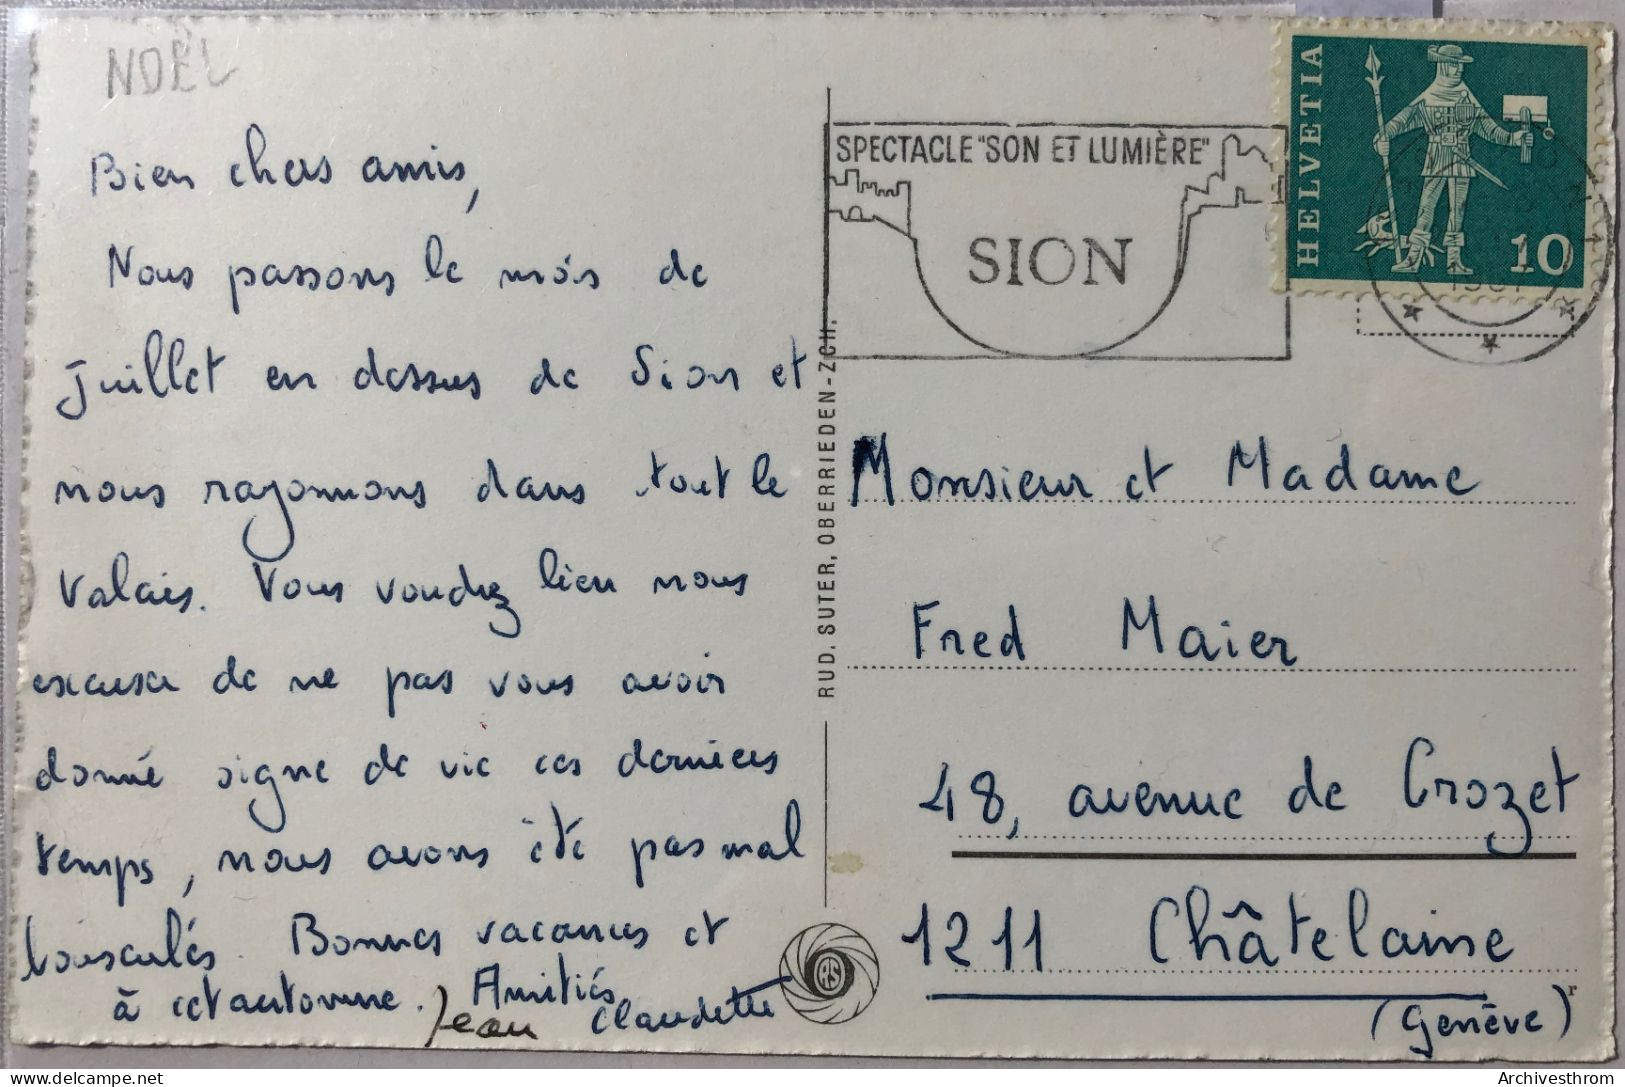 NOËL
Bien chers amis,
Nous passons le mois de
juillet en dessus de Sion et
nous rayonnons dans tout le
Valais. Vous voudrez bien nous
excuser de ne pas vous avoir
donné signe de vie ces dernières
temps, nous avons été pas mal
bousculés. Bonnes vacances et
à cet automne. Amitiés
Jean Claudette
RUD. SUTER, OBERRIEDEN-ZCH.
SPECTACLE "SON ET LUMIÈRE"
SION
HELVETIA
10
Monsieur et Madame
Fred Maier
48, avenue de Crozet
1211 Châtelaine
(Genève)
r
delcampe.net
Archivesthrom